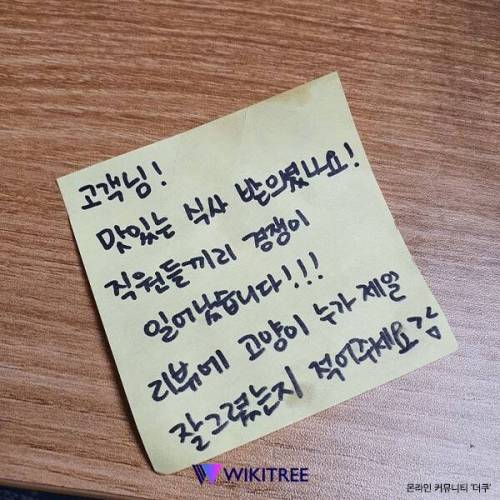 고객님!
맛있는 식사 받의셨나요!
직원들끼리 경쟁이
일어났습니다!!!
리뷰에 고양이 누가 제일
잘그렸는지 적어주세요
WIKITREE
온라인 커뮤니티 '더쿠'